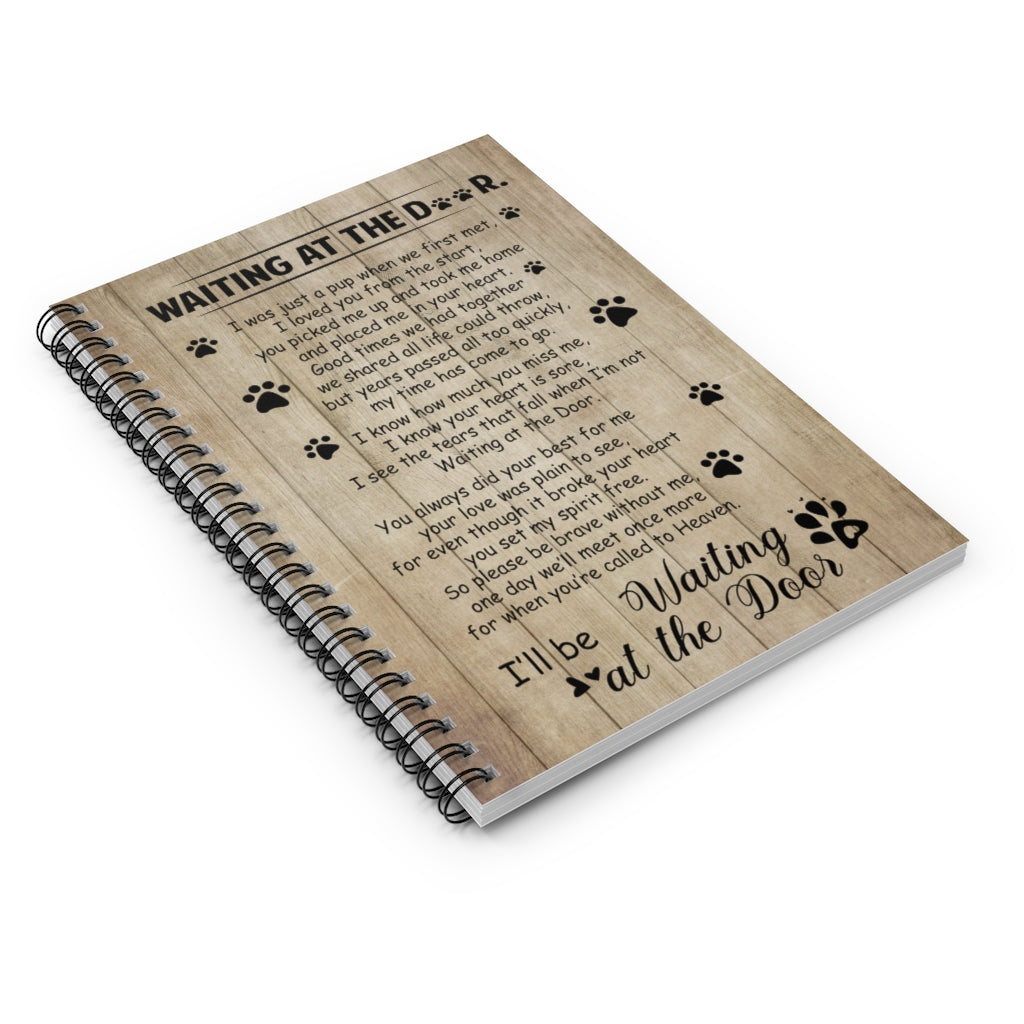 WAITING AT THE DOOR.
I was just a pup when we first met,
I loved you from the start,
you picked me up and took me home
and placed me in your heart.
Good times we had together
we shared all life could throw,
but years passed all too quickly,
my time has come to go.
I know how much you miss me,
I know your heart is sore,
I see the tears that fall when I'm not
Waiting at the Door.
You always did your best for me
your love was plain to see,
for even though it broke your heart
you set my spirit free.
So please be brave without me,
one day we'll meet once more
for when you're called to Heaven.
I'll be Waiting
at the Door